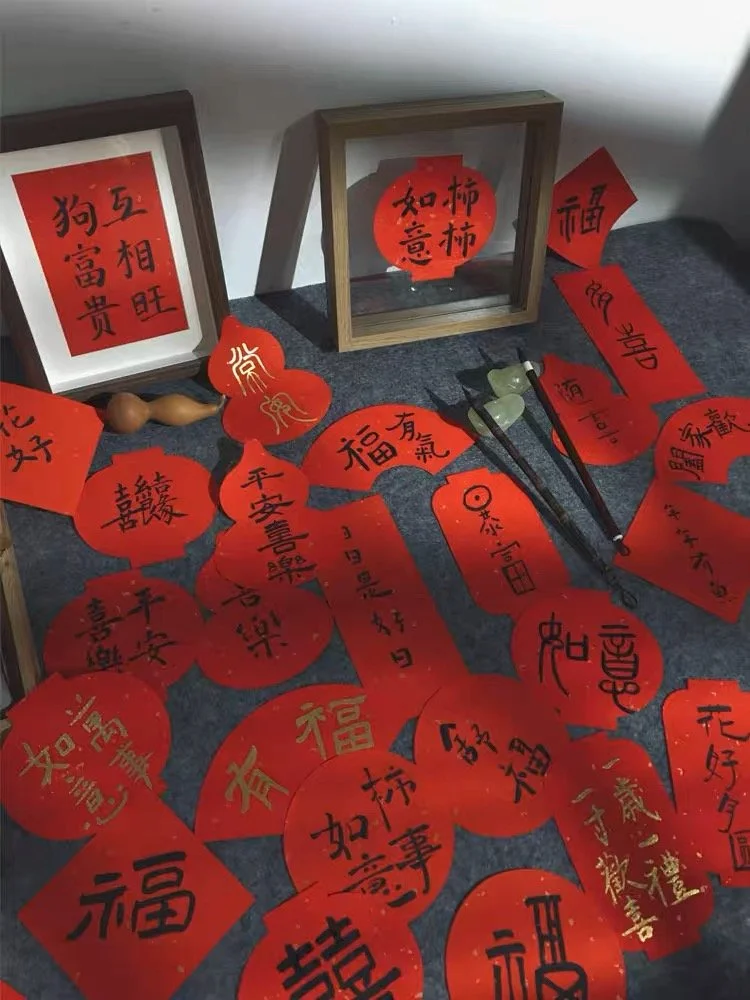 互相旺
狗富贵
柿柿
如意
福
喜
常
有氣
福
花
好
平
安
喜
樂
泰
富
日日是好日
年年有魚
歡
喜
平安
喜樂
喜樂
如意
萬事
如意
福
有
舒
福
花好月圓
柿事
如意
一歲一禮
一寸歡喜
福
囍
福